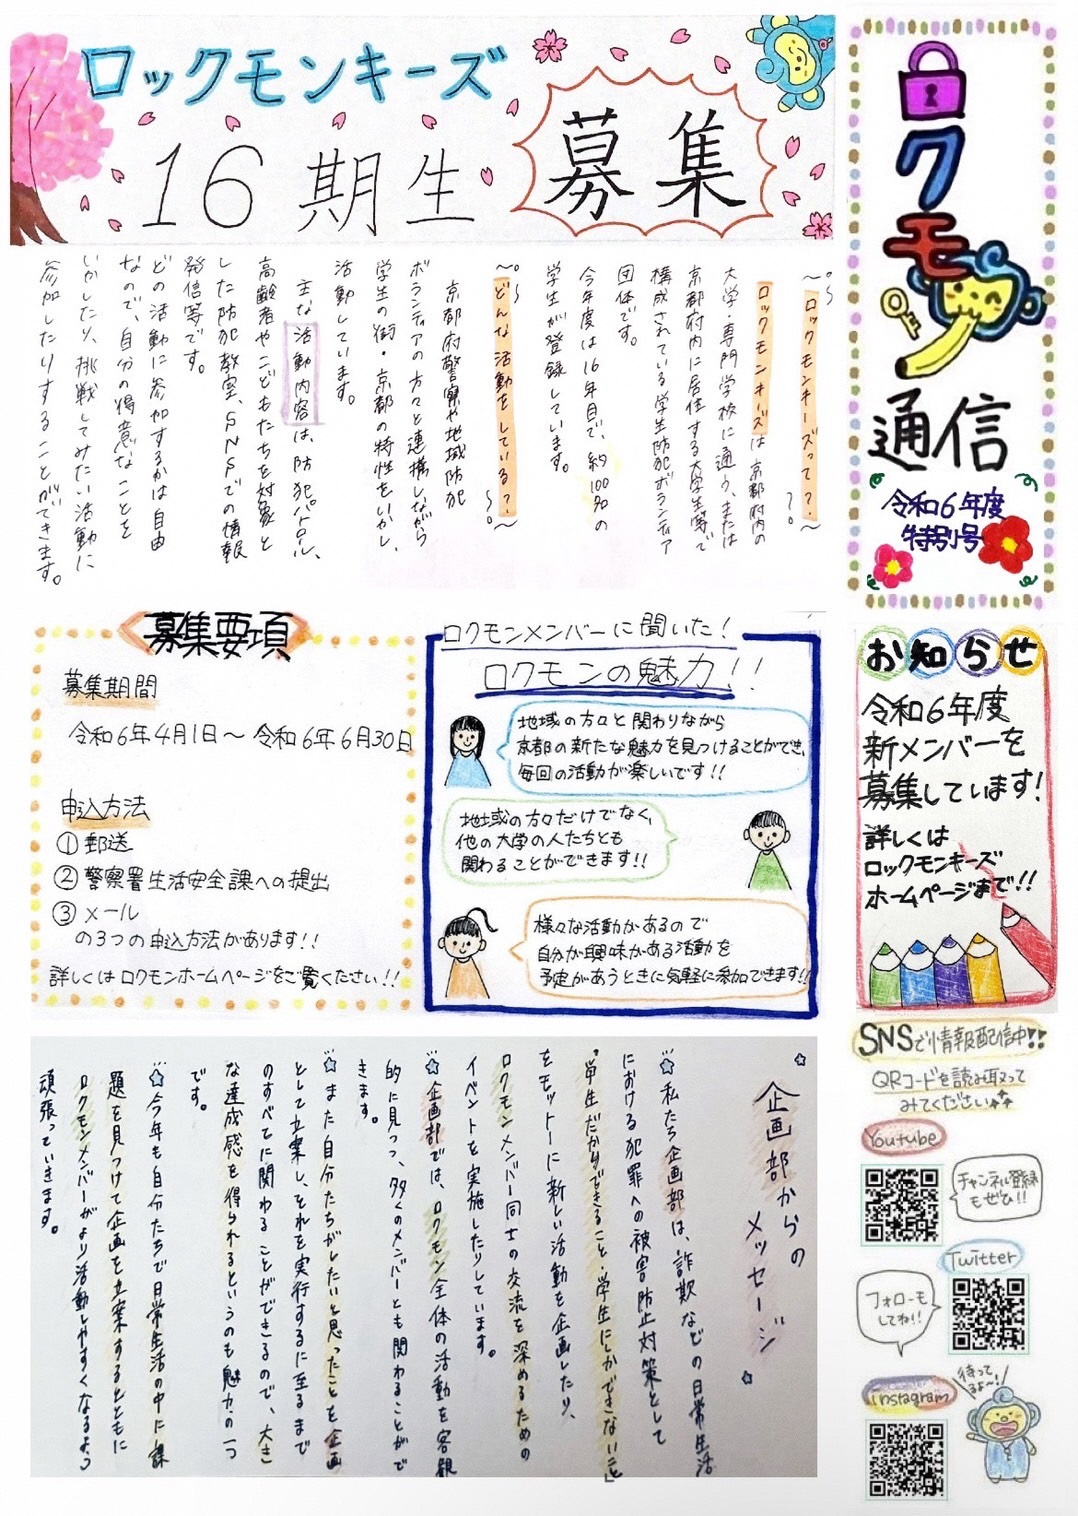 ロックモンキーズ
16期生
募集
ロクモン
通信
令和6年度
特別号
～ロックモンキーズって？～
ロックモンキーズは京都府内の
大学・専門学校に通う、または
京都府内に居住する大学生等で
構成されている学生防犯ボランティア
団体です。
今年度は16年目で、約100名の
学生が登録しています。
～どんな活動をしている？～
京都府警察や地域防犯
ボランティアの方々と連携しながら
学生の街・京都の特性をいかし、
活動しています。
主な活動内容は、防犯パトロール、
高齢者やこどもたちを対象と
した防犯教室、SNSでの情報
発信等です。
どの活動に参加するかは自由
なので、自分の得意なことを
いかしたり、挑戦してみたい活動に
参加したりすることができます。
募集要項
募集期間
令和6年4月1日～令和6年6月30日
申込方法
①郵送
②警察署生活安全課への提出
③メール
の3つの申込方法があります!!
詳しくはロクモンホームページをご覧ください!!
ロクモンメンバーに聞いた!
ロクモンの魅力!!
地域の方々と関わりながら
京都の新たな魅力を見つけることができ、
毎回の活動が楽しいです!!
地域の方々だけでなく、
他の大学の人たちとも
関わることができます!!
様々な活動があるので
自分が興味がある活動を
予定があうときに気軽に参加できます!!
お知らせ
令和6年度
新メンバーを
募集しています!
詳しくは
ロックモンキーズ
ホームページまで!!
企画部からの
メッセージ
私たち企画部は、詐欺などの日常生活
における犯罪への被害防止対策として
「学生だからできること・学生にしかできないこと」
をモットーに新しい活動を企画したり、
ロクモンメンバー同士の交流を深めるための
イベントを実施したりしています。
企画部では、ロクモン全体の活動を客観
的に見つつ、多くのメンバーとも関わることがで
きます。
また自分たちがしたいと思ったことを企画
として立案し、それを実行するに至るまで
のすべてに関わることができるので、大き
な達成感を得られるというのも魅力の一つ
です。
今年も自分たちで日常生活の中に課
題を見つけて企画を立案するとともに
ロクモンメンバーがより活動しやすくなるよう
頑張っていきます。
SNSで情報配信中!!
QRコードを読み取って
みてください
Youtube
チャンネル登録
もぜひ!!
Twitter
フォローも
してね!!
instagram
待って
るよ～!